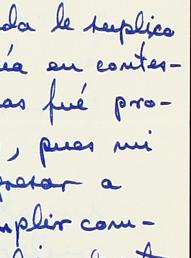 da le suplico
ía en contes-
as fué pro-
, pues mi
gresar a
mplir com-